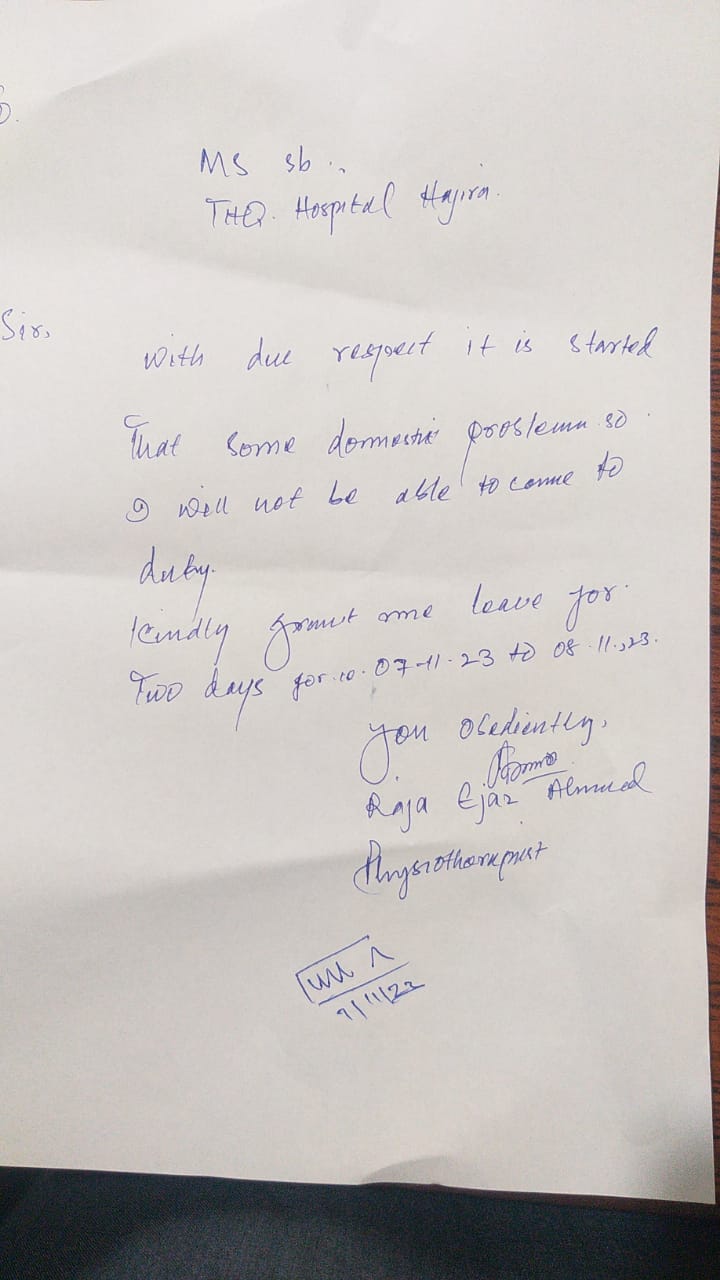 MS sb
THQ. Hospital Hajira.
Sir,
with due respect it is started
That some domestic problem so
I will not be able to come to
duty.
kindly grant me leave for
Two days for 07-11-23 to 08.11.,23.
you obediently,
Raja Ejaz Ahmed
Physiotherapist